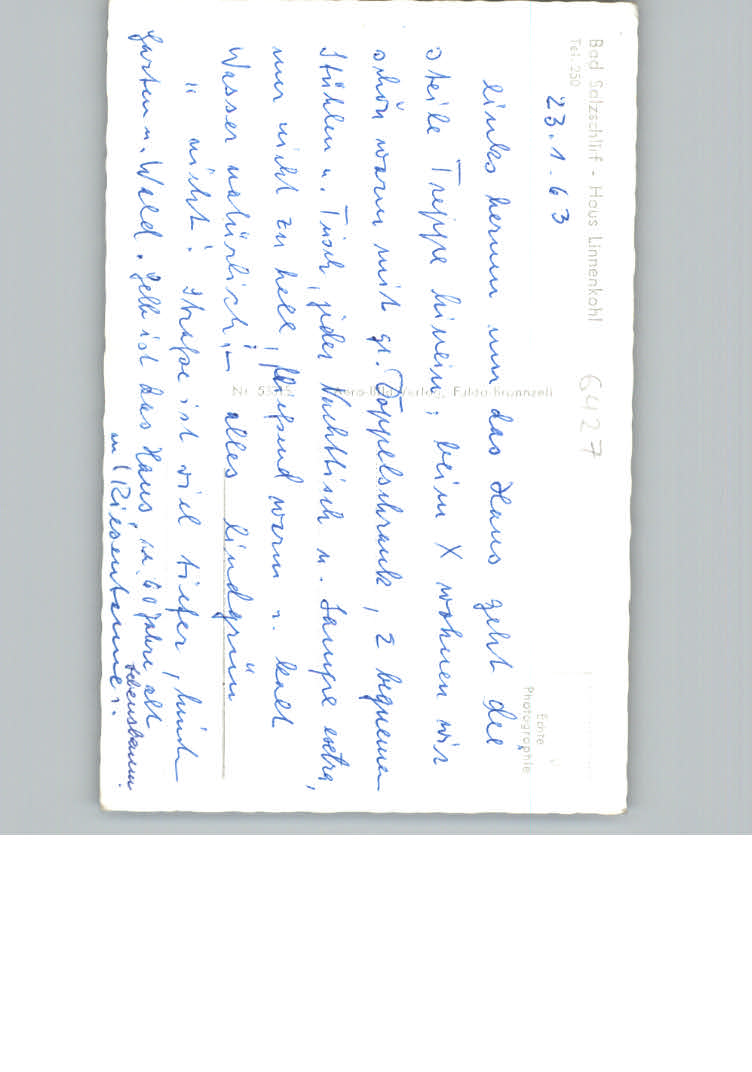 Bad Salzschlirf - Haus Linnenkohl
Tel. 250
6427
23.1.63
Echte
Photographie
links herum um das Haus geht die
steile Treppe hinein; beim X wohnen wir
schön warm mit gr. Doppelschrank, 2 bequemen
Stühlen u. Tisch, jeder Nachttisch u. Lampe extra,
nur nicht zu hell, fließend warm u. kalt
Wasser natürlich; – alles lindgrün
" nicht! Straße ist viel tiefer, hinten
Garten u. Wald. Gelb ist das Haus, ca. 60 Jahre alt
Lebensbaum
u. Riesentanne.
Nr. 53 Aero-Bild Verlag, Fulda-Brunnzell